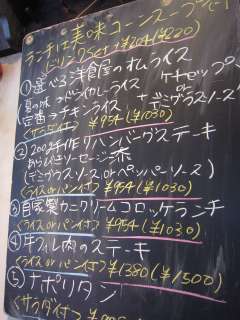 ランチは美味コーンスープ付
ドリンクSet +¥204(¥220)
①選べる洋食屋のオムライス
夏の味→ドライカレーライス
定番→チキンライス + ケチャップ or デミグラスソース
(サラダ付) ¥954(¥1030)
②200g手作りハンバーグステーキ
あらびきソーセージ添
(デミグラスソース or ペッパーソース)
(ライス or パン付) ¥954(¥1030)
③自家製カニクリームコロッケランチ
(ライス or パン付) ¥954(¥1030)
④牛フィレ肉のステーキ
(ライス or パン付) ¥1380(¥1500)
⑤ナポリタン
(サラダ付)